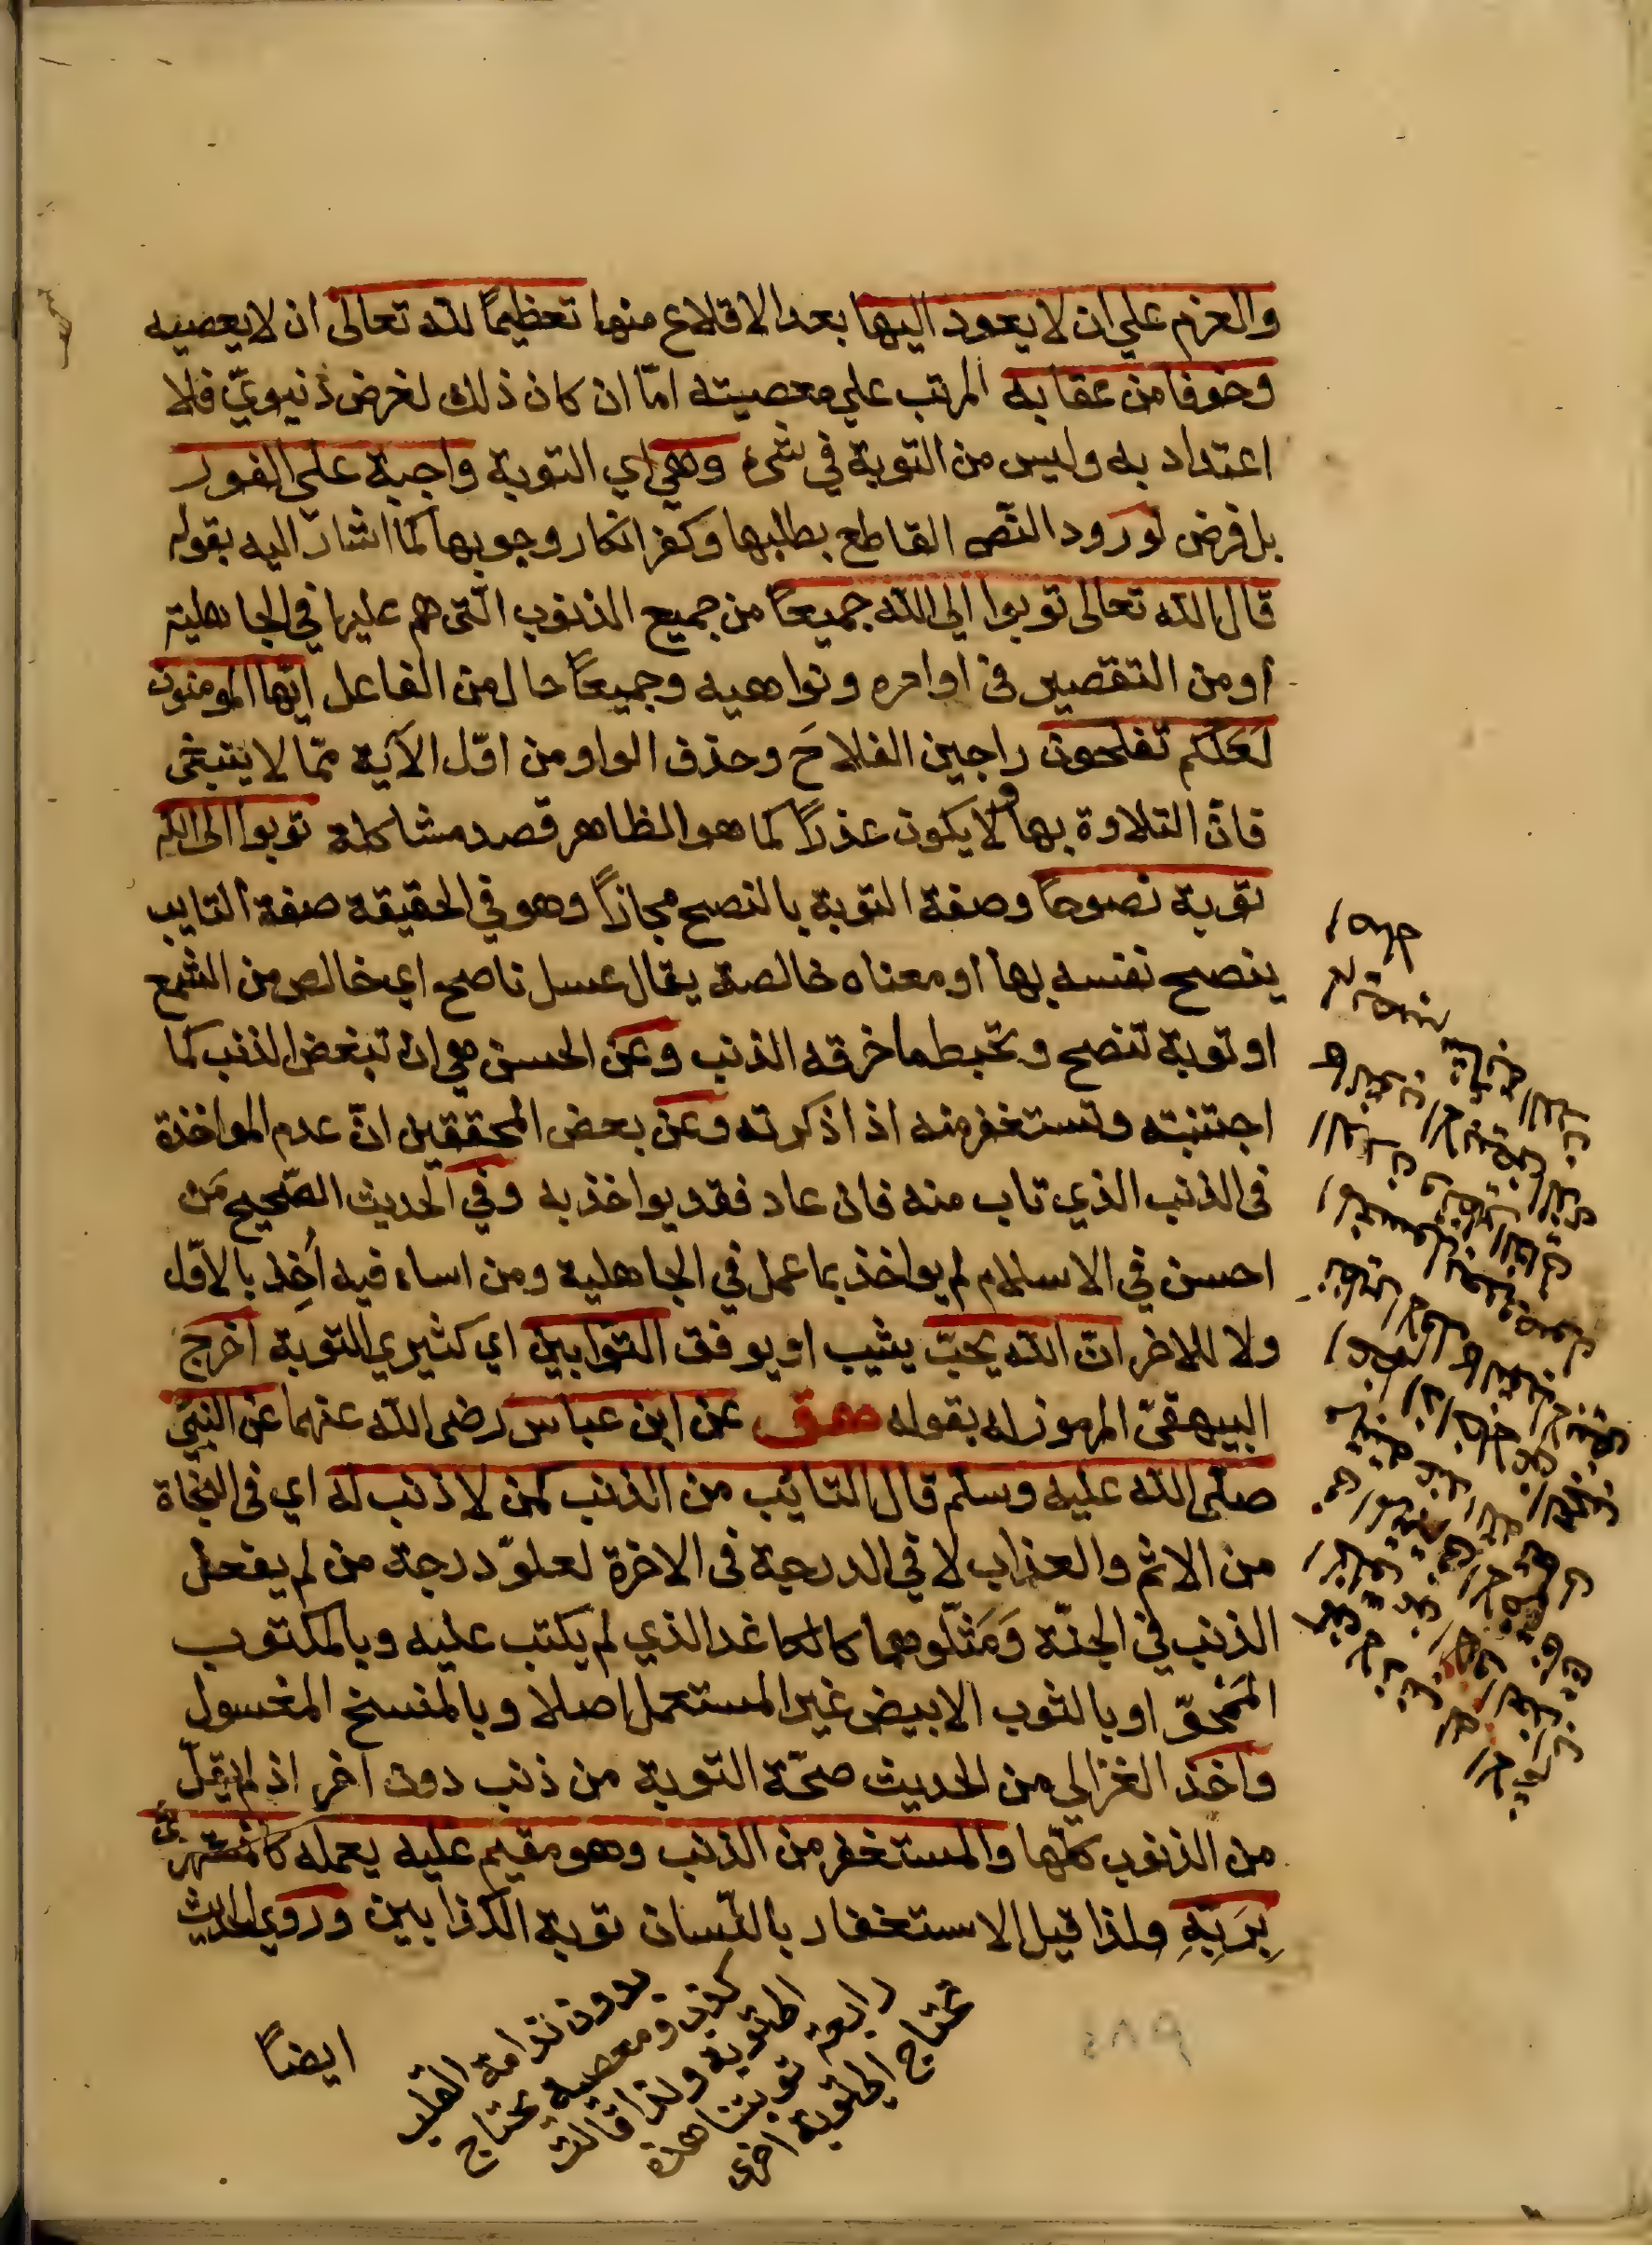 والعزم علي ان لا يعود اليها بعد الاقلاع منها تعظيمًا لله تعالى ان لا يعصيه
وخوفا من عقابه المرتب علي معصيته امّا ان كان ذلك لغرض دنيويّ فلا
اعتداد به وليس من التوبة في شئ وهي اي التوبة واجبة علي الفور
بل فرض لورود النّص القاطع بطلبها وكفر انكار وجوبها كما اشار اليه بقوله
قال الله تعالى توبوا الي الله جميعًا من جميع الذنوب الّتى هم عليها في الجاهلية
او من التقصير فى اوامره ونواهيه وجميعًا حال من الفاعل ايّها المومنون
لعلكم تفلحون راجين الفلاحَ وحذف الواو من اوّل الآية ممّا لا ينبغى
فانّ التلاوة بها ولا يكون عذرًا كما هو الظاهر قصد مشاكلة توبوا الى الله
توبة نصوحًا وصفة التوبة بالنصح مجازًا وهو في الحقيقة صفة التايب
ينصح نفسه بها او معناه خالصة يقال عسل ناصح اي خالص من الشمع
او توبة تنصح وتخيط ما خرقه الذنب وعن الحسن هي ان تبغض الذنب كما
اجتنبته وتستغفر منه اذا ذكرته وعن بعض المحققين انّ عدم المواخذة
فى الذنب الذي تاب منه فان عاد فقد يواخذ به وفي الحديث الصّحيح مَن
احسن في الاسلام لم يواخذ بما عمل في الجاهلية ومن اساء فيه اُخِذ بالاوّل
ولا للاخر انّ الله يحبّ يثيب او يوفق التوّابين اي كثيري التوبة اخرج
البيهقىّ المرموز له بقوله هق عن ابن عباس رضى الله عنهما عن النبيّ
صلى الله عليه وسلم قال التائب من الذنب كمن لا ذنب له اي فى النجاة
من الاثم والعذاب لا في الدرجة فى الاخرة لعلوّ درجة من لم يفعل
الذنب في الجنّة وَمَثّلوهما كالكاغد الذي لم يكتب عليه وبالمكتوب
المَمْحوّ او بالثوب الابيض غير المستعمل اصلا وبالمنسخ المغسول
واخذ الغزالي من الحديث صحّة التوبة من ذنب دون اخر اذ لم يقل
من الذنوب كلّها والمستغفر من الذنب وهو مقيم عليه يعمله كالمستهزئ
بِرَبِّهِ ولذا قيل الاستغفار باللّسان توبة الكذّابين وروي الحديث
بدون ندامة القلب
كذب ومعصية يحتاج
الي التوبة ولذا قالت
رابعة توبتنا هذه
تحتاج الي توبة اخرى
ايضًا